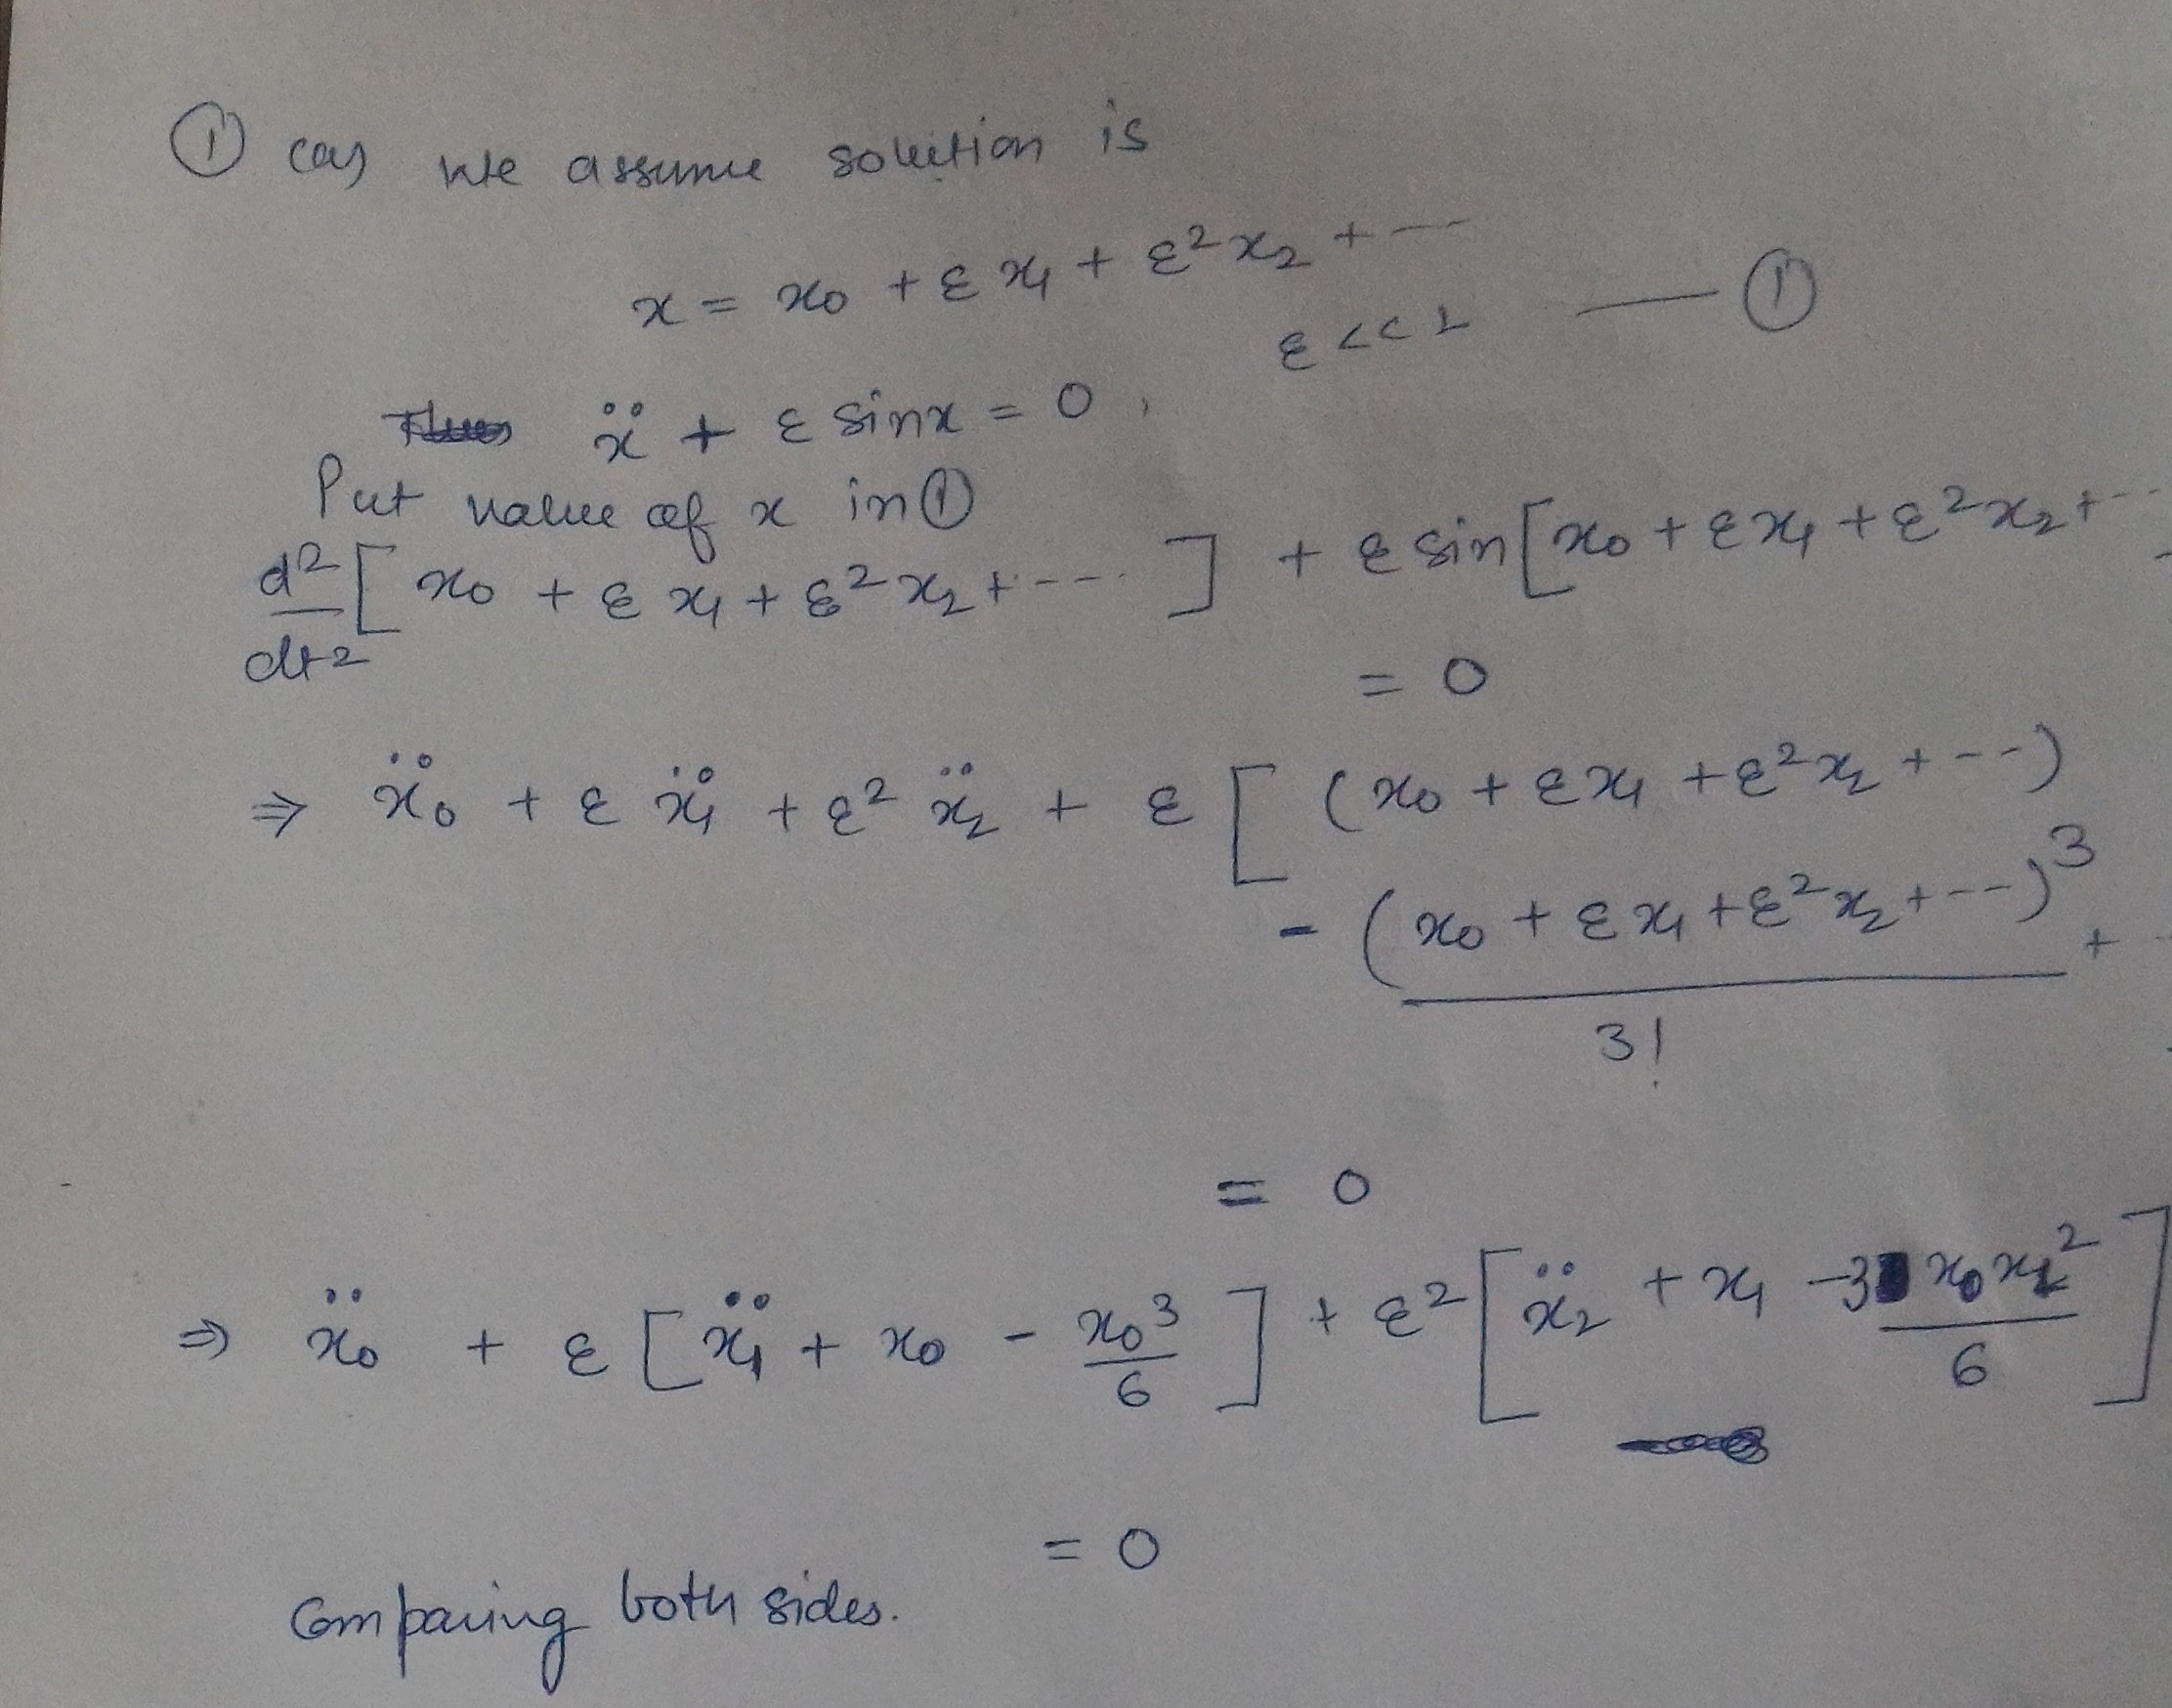 ① (a) We assume solution is
x = x₀ + ε x₁ + ε² x₂ + ---
ε << 1 —— ①
ẍ + ε sinx = 0,
Put value of x in ①
d²/dt² [ x₀ + ε x₁ + ε² x₂ + ---- ] + ε sin[ x₀ + ε x₁ + ε² x₂ + --
= 0
⇒ ẍ₀ + ε ẍ₁ + ε² ẍ₂ + ε [ (x₀ + ε x₁ + ε² x₂ + ---)
- (x₀ + ε x₁ + ε² x₂ + ---)³ / 3! + -
= 0
⇒ ẍ₀ + ε [ ẍ₁ + x₀ - x₀³/6 ] + ε² [ ẍ₂ + x₁ - 3 x₀ x₁²/6 ]
= 0
Comparing both sides.